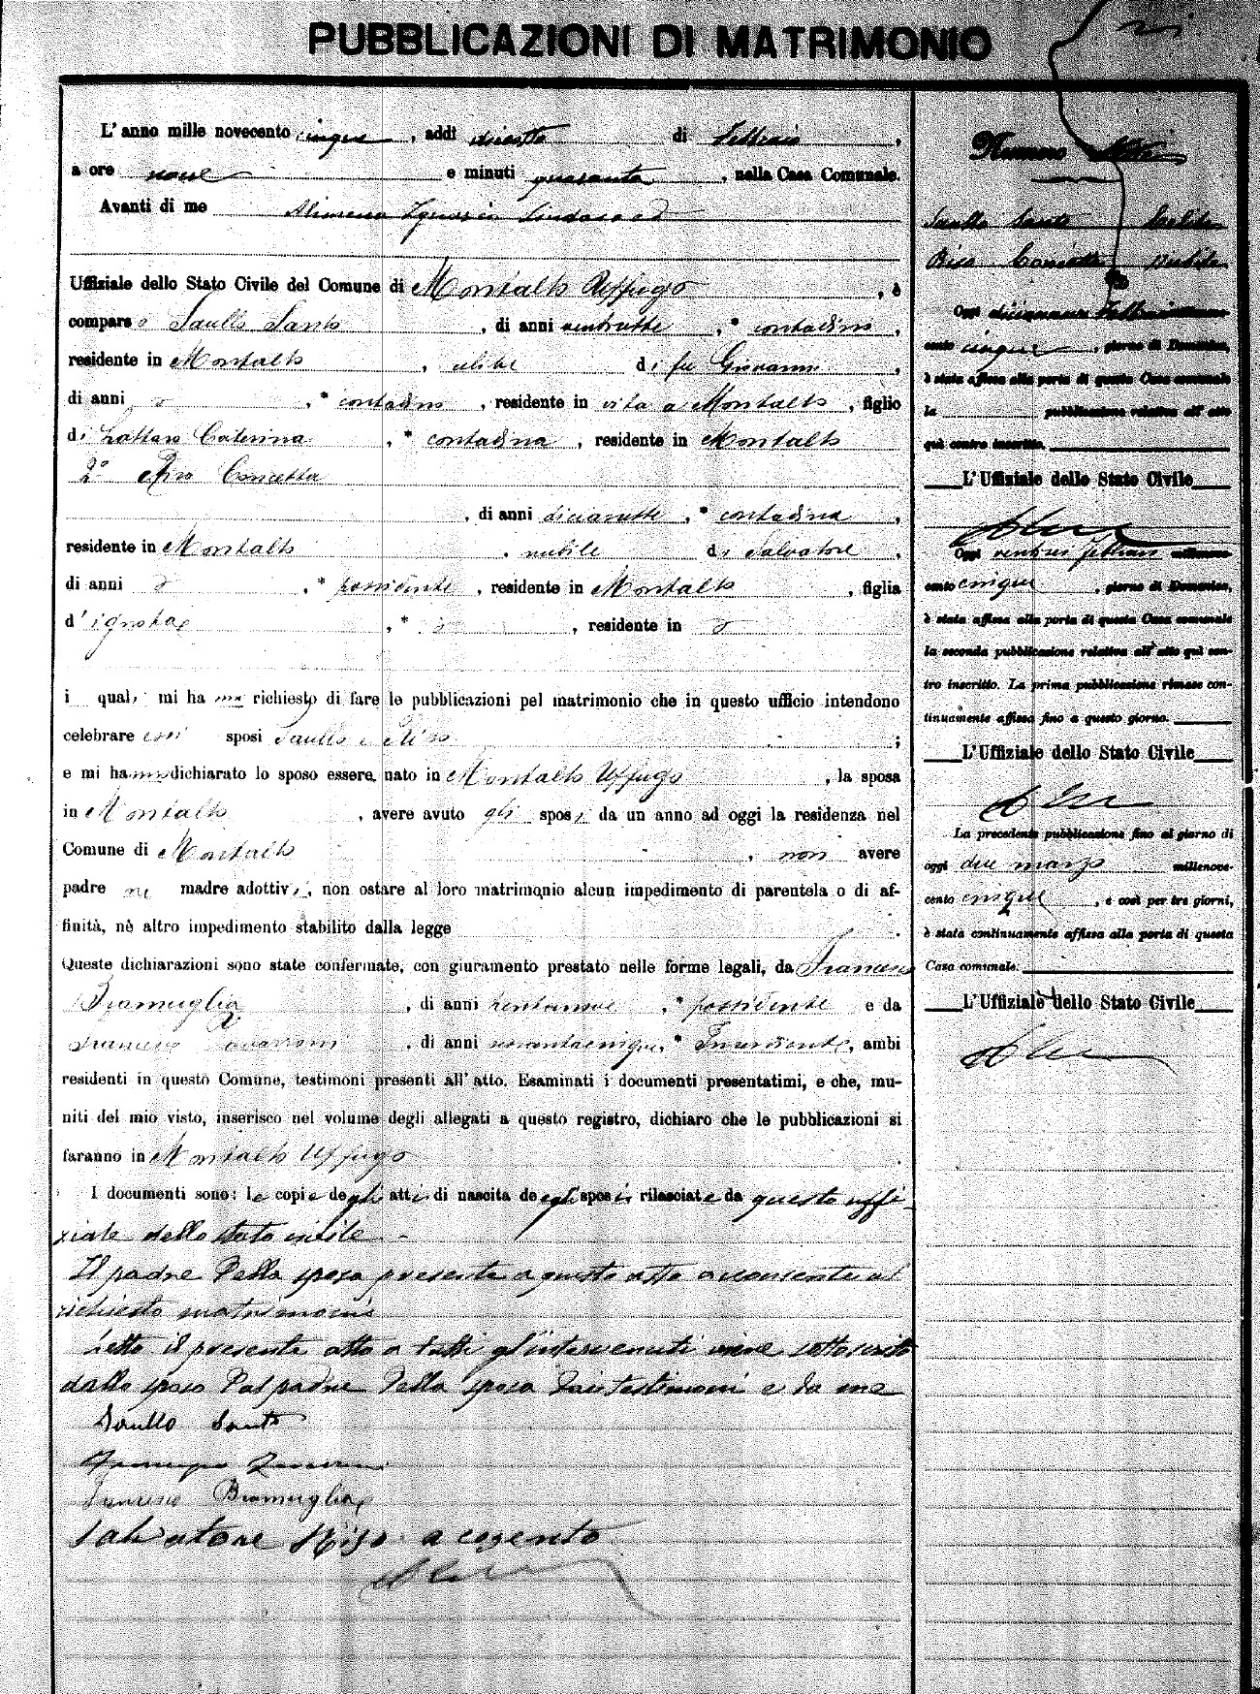 PUBBLICAZIONI DI MATRIMONIO
L'anno mille novecento cinque, addì diciotto di Febbraio,
a ore nove e minuti quaranta, nella Casa Comunale.
Avanti di me Alimena Ignazio Sindaco ed
Uffiziale dello Stato Civile del Comune di Montalto Uffugo, è
comparso Saullo Santo, di anni ventisette, * contadino,
residente in Montalto, celibe di fu Giovanni,
di anni, * contadino, residente in vita a Montalto, figlio
di Lattaro Caterina, * contadina, residente in Montalto
2° Riso Concetta
, di anni diciasette, * contadina,
residente in Montalto, nubile di Salvatore,
di anni, * possidente, residente in Montalto, figlia
d'ignota, *, residente in
i quali mi hanno richiesto di fare le pubblicazioni pel matrimonio che in questo ufficio intendono
celebrare essi sposi Saullo e Riso;
e mi hanno dichiarato lo sposo essere nato in Montalto Uffugo, la sposa
in Montalto, avere avuto gli sposi da un anno ad oggi la residenza nel
Comune di Montalto, non avere
padre nè madre adottivi, non ostare al loro matrimonio alcun impedimento di parentela o di af-
finità, nè altro impedimento stabilito dalla legge.
Queste dichiarazioni sono state confermate, con giuramento prestato nelle forme legali, da Francesco
Bramuglia, di anni trentanove, * possidente e da
Francesco, di anni, *, ambi
residenti in questo Comune, testimoni presenti all'atto. Esaminati i documenti presentatimi, e che, mu-
niti del mio visto, inserisco nel volume degli allegati a questo registro, dichiaro che le pubblicazioni si
faranno in Montalto Uffugo.
I documenti sono: le copie degli atti di nascita degli sposi rilasciate da questo uffi-
ziale dello stato civile.
Il padre della sposa presente a questo atto acconsente al
richiesto matrimonio
Letto il presente atto a tutti gl'intervenuti viene sottoscritto
dallo sposo dal padre della sposa dai testimoni e da me
Saullo Santo
Francesco Bramuglia
Salvatore Riso acogento
Numero
Saullo Santo celibe
Riso Concetta nubile
Oggi diciannove Febbraio millenove-
cento cinque, giorno di Domenica,
è stata affissa alla porta di questa Casa comunale
la pubblicazione relativa all'atto
quì contro inscritto.
L'Uffiziale dello Stato Civile
Oggi ventisei febbraio millenove-
cento cinque, giorno di Domenica,
è stata affissa alla porta di questa Casa comunale
la seconda pubblicazione relativa all'atto quì con-
tro inscritto. La prima pubblicazione rimase con-
tinuamente affissa fino a questo giorno.
L'Uffiziale dello Stato Civile
La precedente pubblicazione fino al giorno di
oggi due marzo millenove-
cento cinque, e così per tre giorni,
è stata continuamente affissa alla porta di questa
Casa comunale.
L'Uffiziale dello Stato Civile